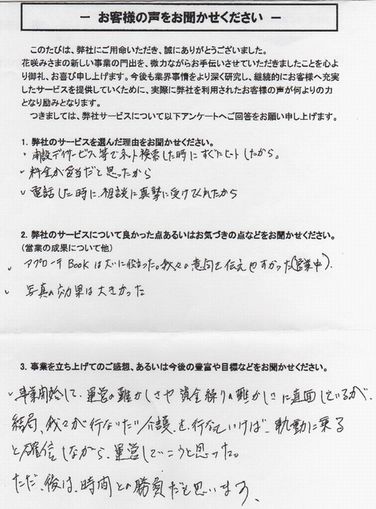 － お客様の声をお聞かせください －
このたびは、弊社にご用命いただき、誠にありがとうございました。
花咲みさまの新しい事業の門出を、微力ながらお手伝いさせていただきましたことを心よ
り御礼、お喜び申し上げます。今後も業界事情をより深く研究し、継続的にお客様へ充実
したサービスを提供していくために、実際に弊社を利用されたお客様の声が何よりの力
となり励みとなります。
つきましては、弊社サービスについて以下アンケートへご回答をお願い申し上げます。
1. 弊社のサービスを選んだ理由をお聞かせください。
・ デイサービス等でネット検索した時にすぐヒットしたから。
・ 料金が妥当だと思ったから
・ 電話した時に相談に真摯に受けてくれたから
2. 弊社のサービスについて良かった点あるいはお気づきの点などをお聞かせください。
(営業の成果について他)
アプローチBookは大いに役立った。我々の意向を伝えやすかった(営業中)
写真の効果は大きかった
3. 事業を立ち上げてのご感想、あるいは今後の豊富や目標などをお聞かせください。
事業開始して、運営の難かしさや資金繰りの難かしさに直面しているが、
結局、我々が行ないたい介護を行なっていけば、軌動に乗る
と確信しながら、運営していこうと思った。
ただ、後は、時間との勝負だと思います、